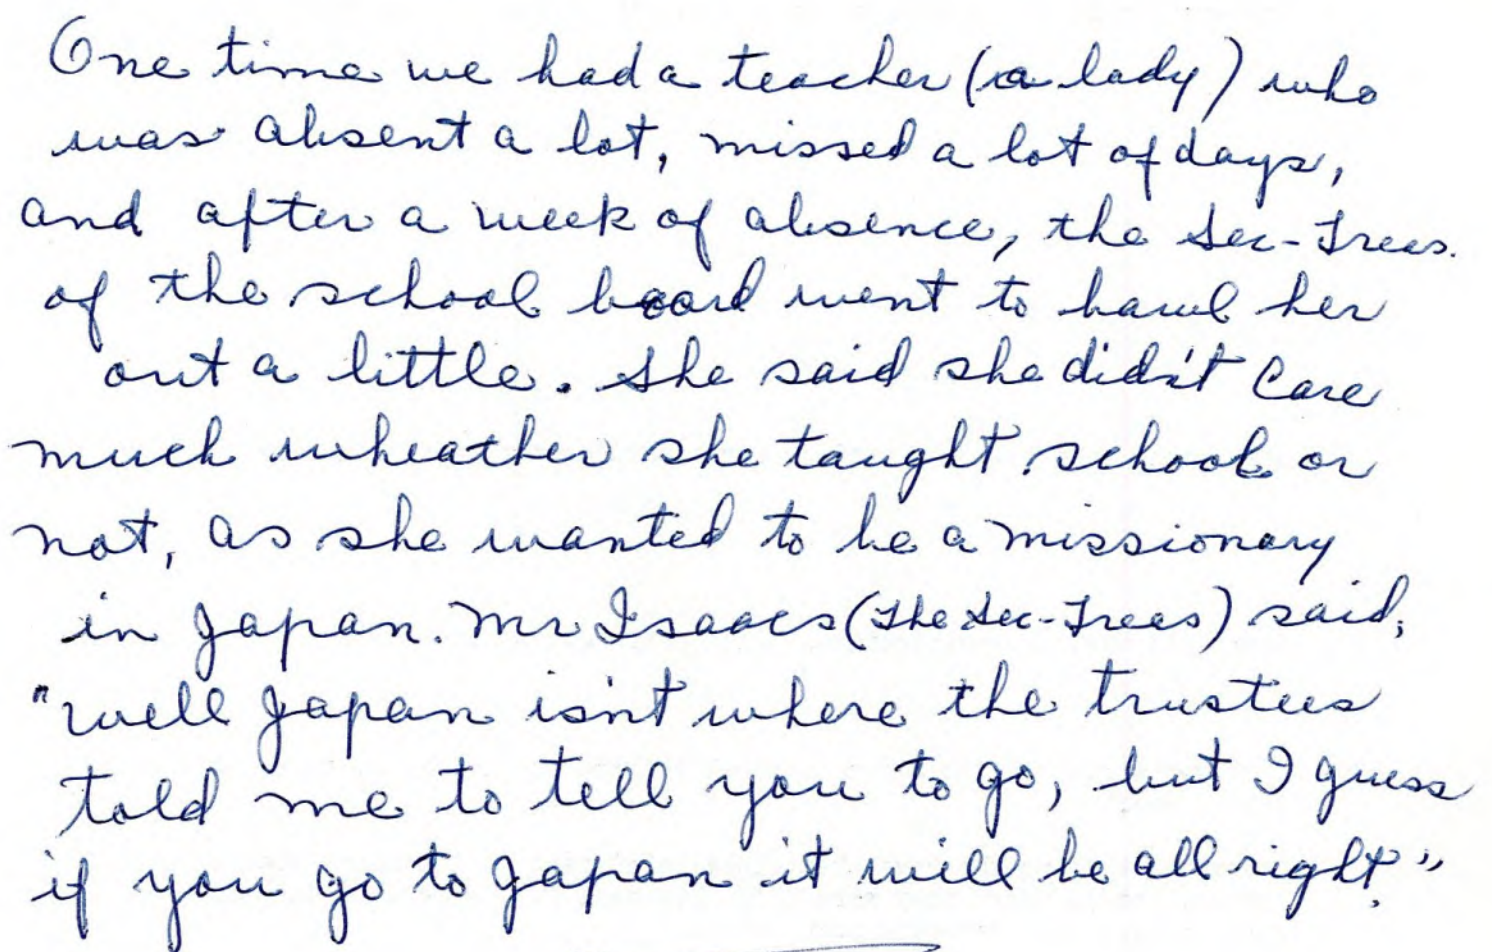 One time we had a teacher (a lady) who
was absent a lot, missed a lot of days,
and after a week of absence, the Sec-Treas.
of the school board went to bawl her
out a little. She said she didn't care
much wheather she taught school or
not, as she wanted to be a missionary
in Japan. Mr Isaacs (The Sec-Treas) said,
"well Japan isn't where the trustees
told me to tell you to go, but I guess
if you go to Japan it will be all right."